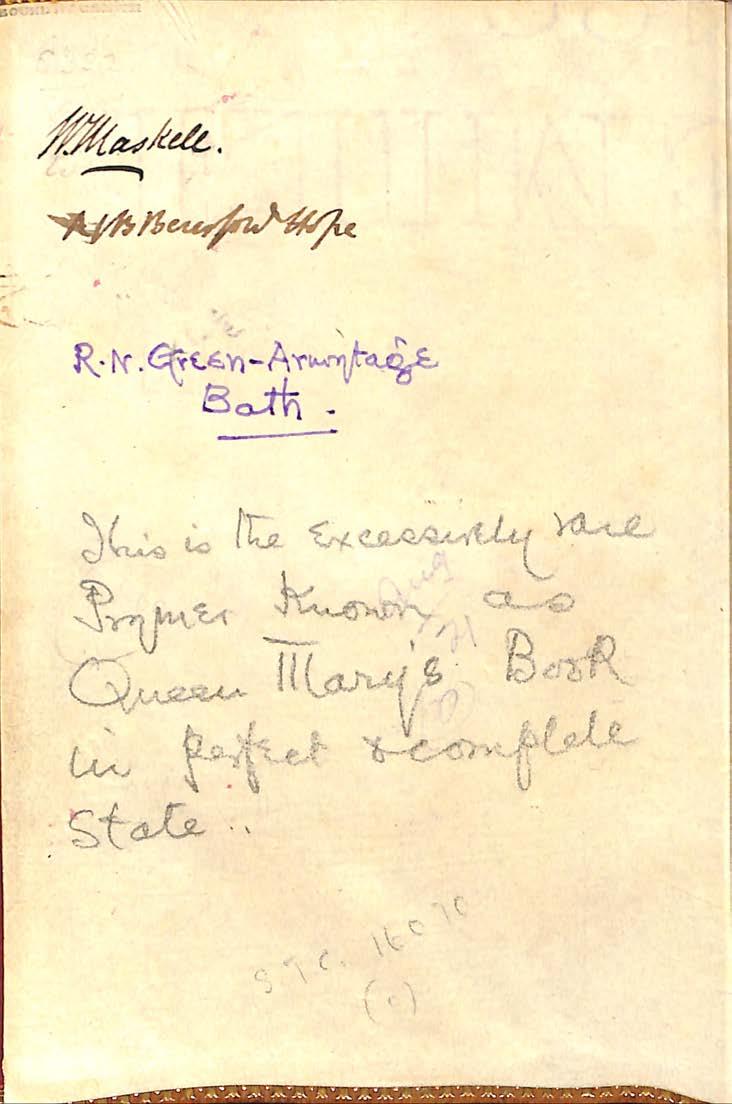 W. Maskell.
A J B Beresford Hope
R. N. Green-Armytage
Bath.
This is the Excessively rare
Prymer Known as
Queen Mary's Book
in perfect & complete
State..
STC. 16070
(c)